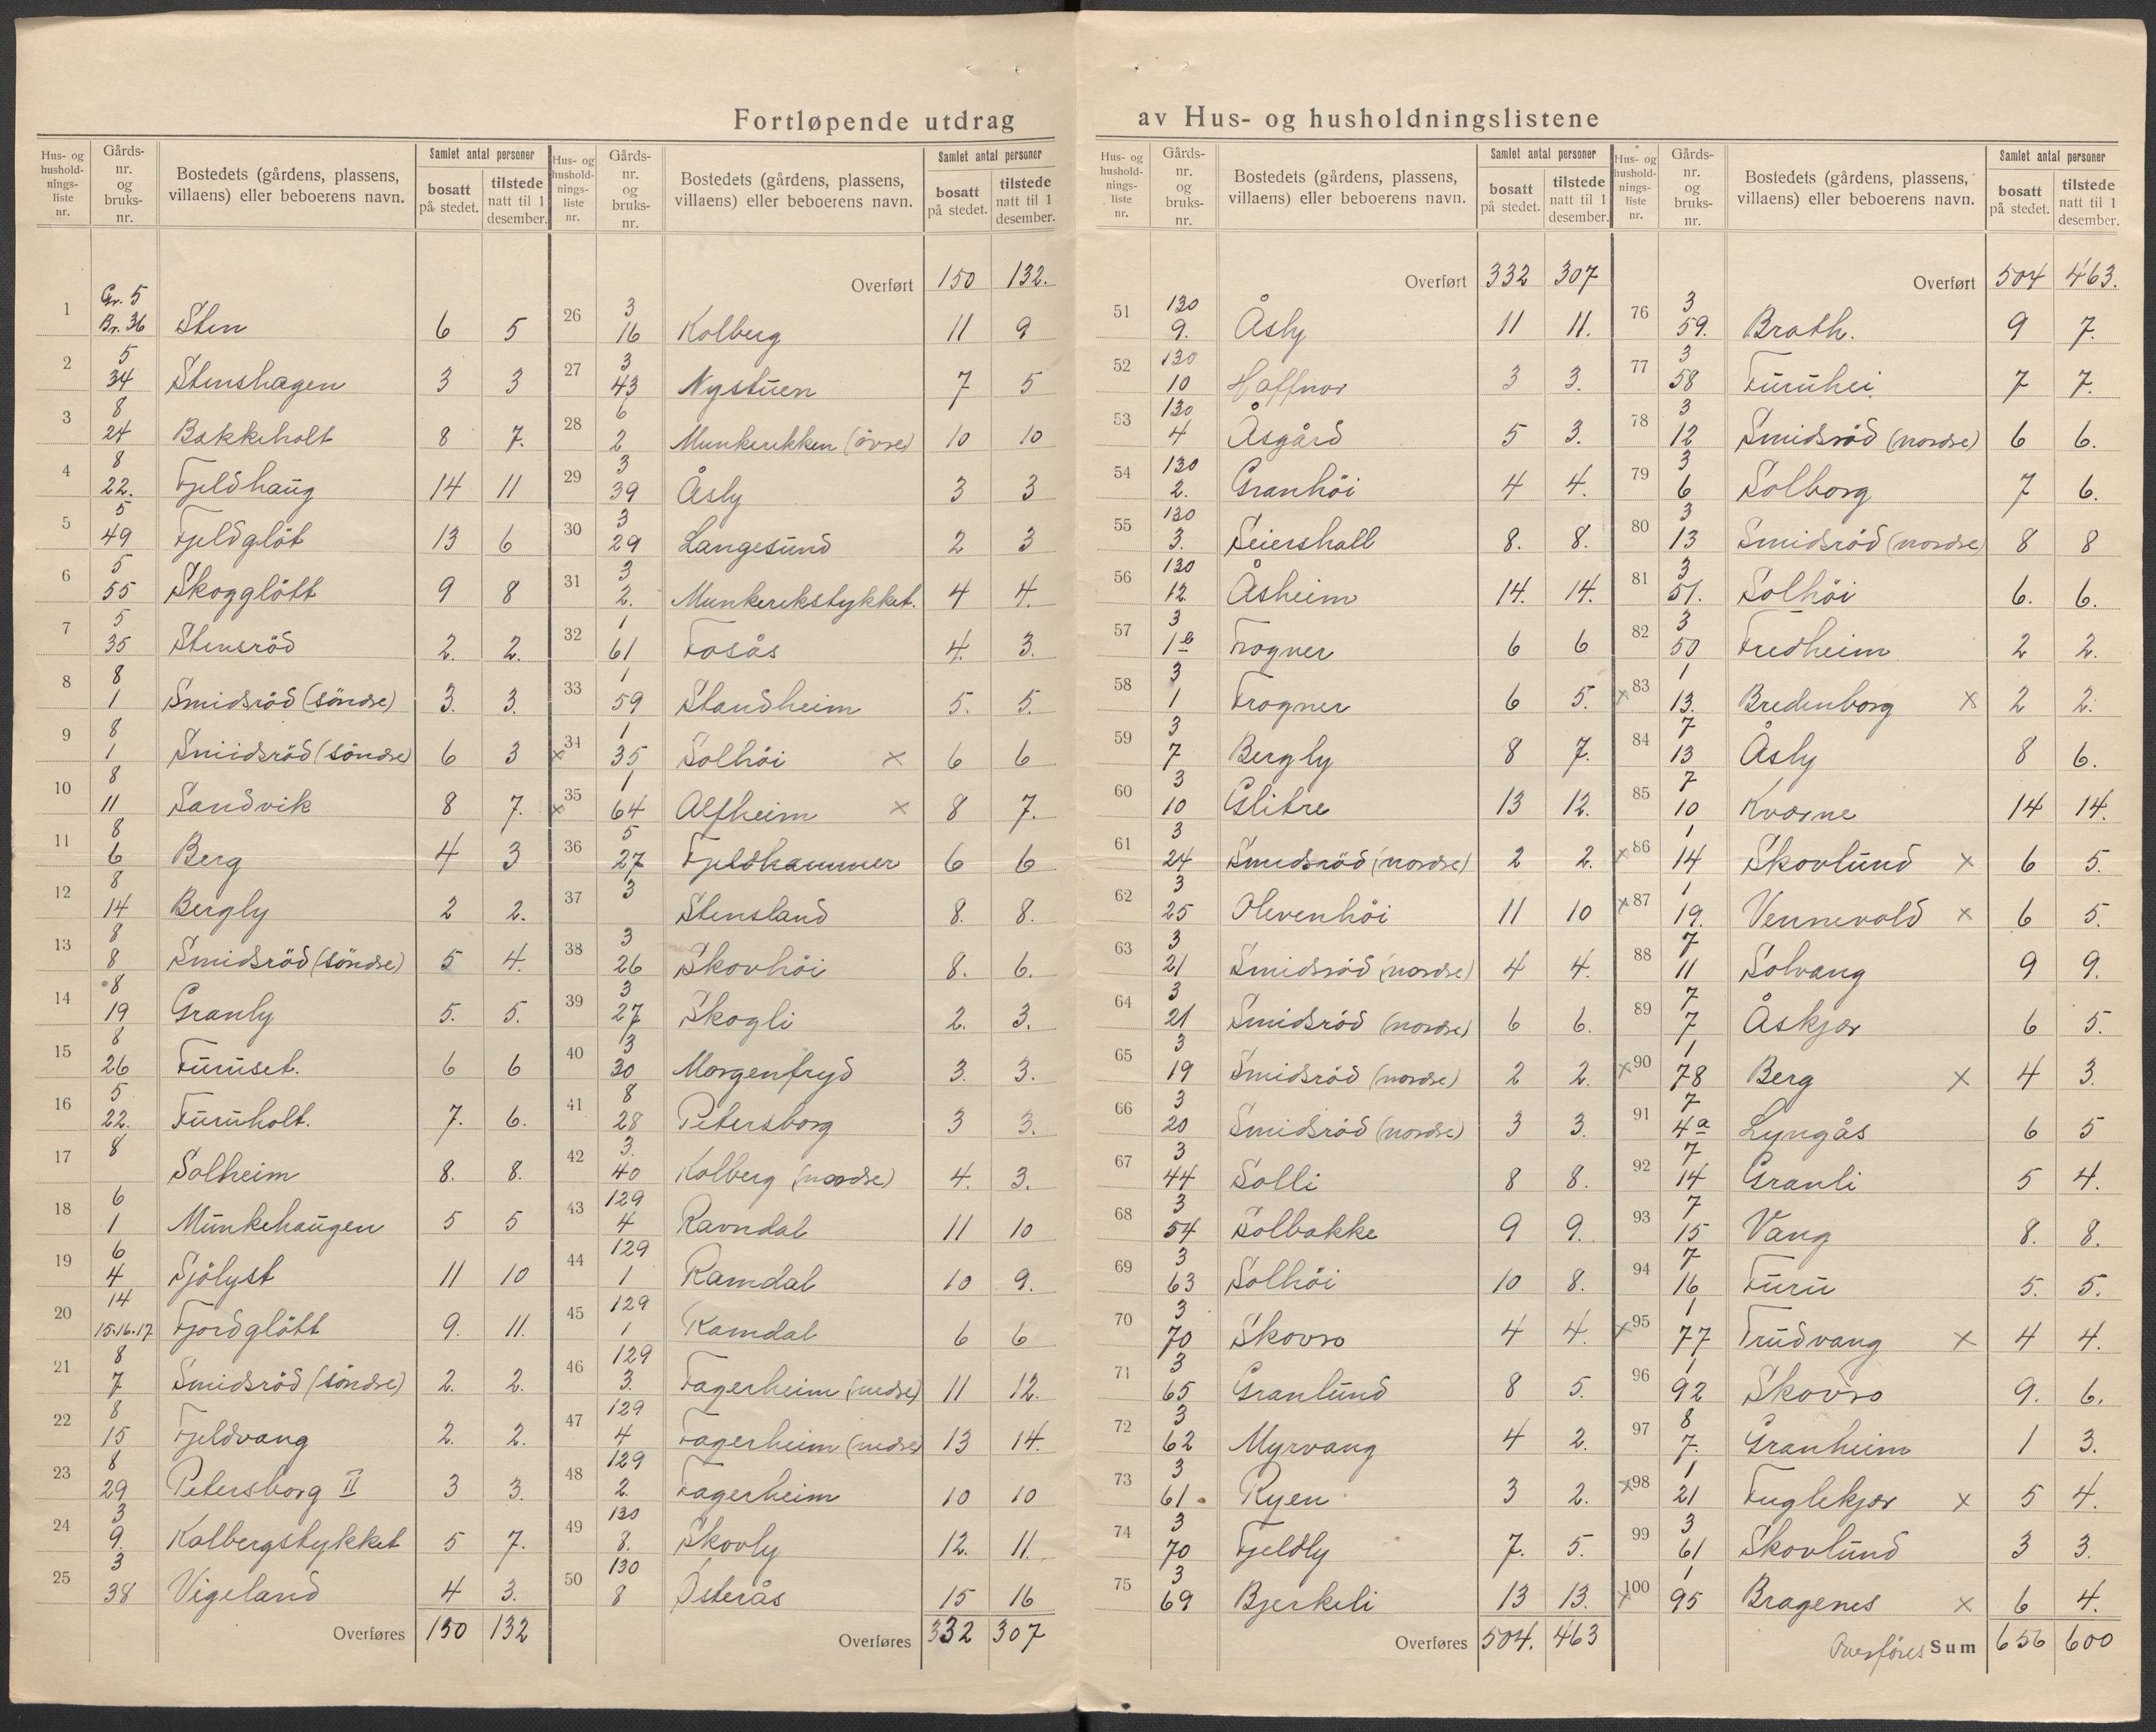 Fortløpende utdrag av Hus- og husholdningslistene
Hus- og husholdnings-liste nr. | Gårds-nr. og bruks-nr. | Bostedets (gårdens, plassens, villaens) eller beboerens navn. | Samlet antal personer | bosatt på stedet. | tilstede natt til 1 desember.
1 | Gr. 5 Br. 36 | Sten | 6 | 5
2 | 5 34 | Stenshagen | 3 | 3
3 | 8 24 | Bakkeholt | 8 | 7.
4 | 8 22. | Fjeldhaug | 14 | 11
5 | 5 49 | Fjeldgløt | 13 | 6
6 | 5 55 | Skogglött | 9 | 8
7 | 5 35 | Stensröd | 2. | 2.
8 | 8 1 | Smidsröd (söndre) | 3. | 3.
9 | 8 1 | Smidsröd (söndre) | 6 | 3
10 | 8 11 | Sandvik | 8 | 7.
11 | 8 6 | Berg | 4 | 3
12 | 8 14 | Bergly | 2 | 2.
13 | 8 8 | Smidsröd (söndre) | 5 | 4.
14 | 8 19 | Granly | 5. | 5.
15 | 8 26 | Furuset. | 6 | 6
16 | 5 22. | Furuholt. | 7. | 6.
17 | 8 | Solheim | 8. | 8.
18 | 6 1 | Munkehaugen | 5 | 5
19 | 6 4 | Sjölyst | 11 | 10
20 | 14 15.16.17 | Fjordglött | 9. | 11.
21 | 8 7 | Smidsröd (söndre) | 2. | 2.
22 | 8 15 | Fjeldvang | 2. | 2.
23 | 8 29 | Petersborg II | 3 | 3.
24 | 3 9. | Kolbergstykket | 5 | 7.
25 | 3 38 | Vigeland | 4 | 3.
Overføres | 150 | 132
Hus- og husholdnings-liste nr. | Gårds-nr. og bruks-nr. | Bostedets (gårdens, plassens, villaens) eller beboerens navn. | Samlet antal personer | bosatt på stedet. | tilstede natt til 1 desember.
Overført | 150 | 132.
26 | 3 16 | Kolberg | 11 | 9
27 | 3 43 | Nystuen | 7 | 5
28 | 6 2 | Munkerekken (övre) | 10 | 10
29 | 3 39 | Åsly | 3 | 3
30 | 3 29 | Langesund | 2 | 3
31 | 3 2. | Munkerekstykket. | 4 | 4.
32 | 1 61 | Fosås | 4. | 3.
33 | 1 59 | Standheim | 5. | 5.
x 34 | 1 35 | Solhöi x | 6 | 6
x 35 | 1 64 | Alfheim x | 8 | 7.
36 | 5 27 | Fjeldhammer | 6 | 6
37 | 3 | Stensland | 8. | 8.
38 | 3 26 | Skovhöi | 8. | 6.
39 | 3 27 | Skogli | 2. | 3.
40 | 3 30 | Morgenfryd | 3. | 3.
41 | 8 28 | Petersborg | 3 | 3.
42 | 3. 40 | Kolberg (nordre) | 4. | 3.
43 | 129 4 | Ravndal | 11 | 10
44 | 129 1 | Ramdal | 10 | 9.
45 | 129 1 | Ramdal | 6 | 6
46 | 129 3. | Fagerheim (nedre) | 11 | 12.
47 | 129 4 | Fagerheim (nedre) | 13 | 14.
48 | 129 2. | Fagerheim | 10 | 10
49 | 130 8. | Skovly | 12. | 11.
50 | 130 8 | Østerås | 15 | 16
Overføres | 332 | 307
Hus- og husholdnings-liste nr. | Gårds-nr. og bruks-nr. | Bostedets (gårdens, plassens, villaens) eller beboerens navn. | Samlet antal personer | bosatt på stedet. | tilstede natt til 1 desember.
Overført | 332 | 307
51 | 130 9. | Åsly | 11 | 11.
52 | 130 10 | Haffnor | 3 | 3.
53 | 130 4 | Åsgård | 5 | 3.
54 | 130 2. | Granhöi | 4 | 4.
55 | 130 3. | Seiershall | 8. | 8.
56 | 130 12. | Åsheim | 14. | 14.
57 | 3 1b | Frogner | 6 | 6
58 | 3 1 | Frogner | 6 | 5.
59 | 3 7 | Bergly | 8 | 7.
60 | 3 10 | Glitre | 13 | 12.
61 | 3 24 | Smidsröd (nordre) | 2 | 2.
62 | 3 25 | Olevenhöi | 11 | 10
63 | 3 21 | Smidsröd (nordre) | 4 | 4.
64 | 3 21 | Smidsröd (nordre) | 6 | 6.
65 | 3 19 | Smidsröd (nordre) | 2 | 2.
66 | 3 20 | Smidsröd (nordre) | 3 | 3.
67 | 3 44 | Solli | 8 | 8.
68 | 3 54 | Solbakke | 9 | 9.
69 | 3 63 | Solhöi | 10 | 8.
70 | 3 70 | Skovro | 4 | 4.
71 | 3 65 | Granlund | 8 | 5.
72 | 3 62 | Myrvang | 4 | 2.
73 | 3 61 | Ryen | 3 | 2.
74 | 3 70 | Fjeldly | 7. | 5.
75 | 3 69 | Bjerkeli | 13 | 13.
Overføres | 504. | 463
Hus- og husholdnings-liste nr. | Gårds-nr. og bruks-nr. | Bostedets (gårdens, plassens, villaens) eller beboerens navn. | Samlet antal personer | bosatt på stedet. | tilstede natt til 1 desember.
Overført | 504 | 463.
76 | 3 59. | Brath. | 9 | 7.
77 | 3 58 | Furuhei | 7 | 7.
78 | 3 12 | Smidsröd (nordre) | 6 | 6.
79 | 3 6 | Solborg | 7 | 6.
80 | 3 13 | Smidsröd (nordre) | 8 | 8
81 | 3 51. | Solhöi | 6. | 6.
82 | 3 50 | Fredheim | 2 | 2.
x 83 | 1 13. | Bredenborg x | 2 | 2.
84 | 7 13 | Åsly | 8 | 6.
85 | 7 10 | Kværne | 14 | 14.
x 86 | 1 14 | Skovlund x | 6 | 5.
x 87 | 1 19. | Vennevold x | 6 | 5.
88 | 7 11 | Solvang | 9 | 9.
89 | 7 7 | Åskjær | 6 | 5.
x 90 | 1 78 | Berg x | 4 | 3.
91 | 7 4a | Lyngås | 6 | 5
92 | 7 14 | Granli | 5 | 4.
93 | 7 15 | Vang | 8. | 8.
94 | 7 16 | Furu | 5. | 5.
x 95 | 1 77 | Trudvang x | 4 | 4.
96 | 1 92 | Skovro | 9. | 6.
97 | 8 7. | Granheim | 1 | 3.
x 98 | 1 21 | Fuglekjær x | 5 | 4.
99 | 3 61 | Skovlund | 3 | 3.
x 100 | 1 95 | Bragenes x | 6 | 4.
Overføres Sum | 656 | 600